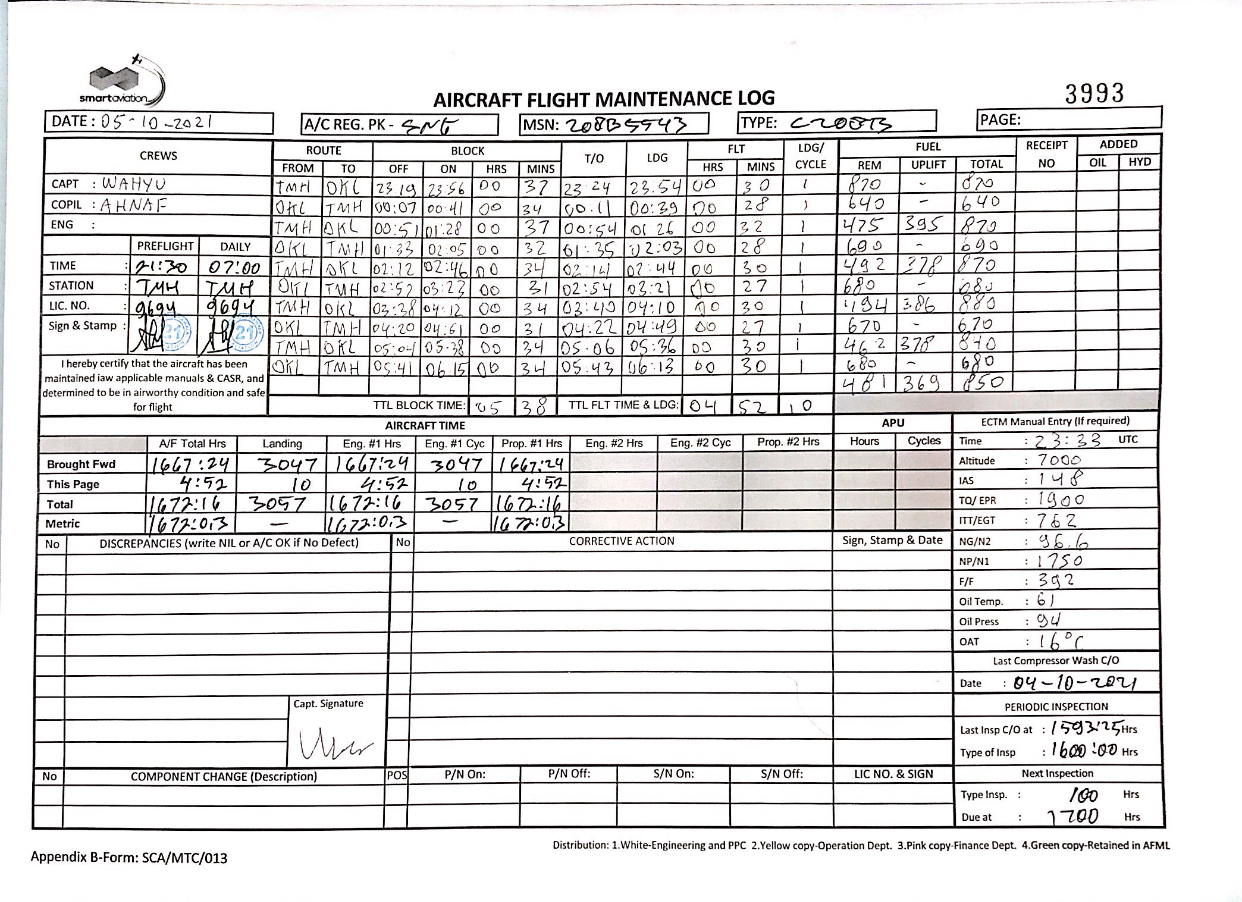 smartaviation
AIRCRAFT FLIGHT MAINTENANCE LOG
3993
DATE : 05-10-2021 A/C REG. PK - SNG MSN: 208B5543 TYPE: C208B PAGE:
CREWS ROUTE BLOCK T/O LDG FLT LDG/CYCLE FUEL RECEIPT NO ADDED
FROM TO OFF ON HRS MINS HRS MINS REM UPLIFT TOTAL OIL HYD
CAPT : WAHYU TMH OKL 23 19 23:56 00 37 23:24 23.54 00 30 1 870 - 870
COPIL : AHNAF OKL TMH 00:07 00:41 00 34 00:11 00:39 00 28 1 640 - 640
ENG : TMH OKL 00:51 01:28 00 37 00:54 01 26 00 32 1 475 395 870
PREFLIGHT DAILY OKL TMH 01:33 02:05 00 32 01:35 02:03 00 28 1 690 - 690
TIME : 21:30 07:00 TMH OKL 02:12 02:46 00 34 02:14 02:44 00 30 1 492 378 870
STATION : TMH TMH OKL TMH 02:52 03:23 00 31 02:54 03:21 00 27 1 680 - 680
LIC. NO. : 9694 9694 TMH OKL 03:38 04:12 00 34 03:40 04:10 00 30 1 494 386 880
Sign & Stamp : 21 21 OKL TMH 04:20 04:51 00 31 04:22 04:49 00 27 1 670 - 670
TMH OKL 05:04 05:38 00 34 05:06 05:36 00 30 1 462 378 840
OKL TMH 05:41 06:15 00 34 05.43 06:13 00 30 1 680 - 680
481 369 850
I hereby certify that the aircraft has been
maintained iaw applicable manuals & CASR, and
determined to be in airworthy condition and safe
for flight
TTL BLOCK TIME: 05 38 TTL FLT TIME & LDG: 04 52 10
AIRCRAFT TIME APU
A/F Total Hrs Landing Eng. #1 Hrs Eng. #1 Cyc Prop. #1 Hrs Eng. #2 Hrs Eng. #2 Cyc Prop. #2 Hrs Hours Cycles
Brought Fwd 1667:24 3047 1667:24 3047 1667:24
This Page 4:52 10 4:52 10 4:52
Total 1672:16 3057 1672:16 3057 1672:16
Metric 1672:0,3 — 1672:0,3 — 1672:0,3
ECTM Manual Entry (If required)
Time : 23:33 UTC
Altitude : 7000
IAS : 148
TQ/ EPR : 1900
ITT/EGT : 762
NG/N2 : 96.6
NP/N1 : 1750
F/F : 392
Oil Temp. : 61
Oil Press : 94
OAT : 16°C
Last Compressor Wash C/O
Date : 04-10-2021
PERIODIC INSPECTION
Last Insp C/O at : 1593:25 Hrs
Type of Insp : 1600:00 Hrs
Next Inspection
Type Insp. : 100 Hrs
Due at : 1700 Hrs
No DISCREPANCIES (write NIL or A/C OK if No Defect) No CORRECTIVE ACTION Sign, Stamp & Date
Capt. Signature
No COMPONENT CHANGE (Description) POS P/N On: P/N Off: S/N On: S/N Off: LIC NO. & SIGN
Distribution: 1.White-Engineering and PPC 2.Yellow copy-Operation Dept. 3.Pink copy-Finance Dept. 4.Green copy-Retained in AFML
Appendix B-Form: SCA/MTC/013